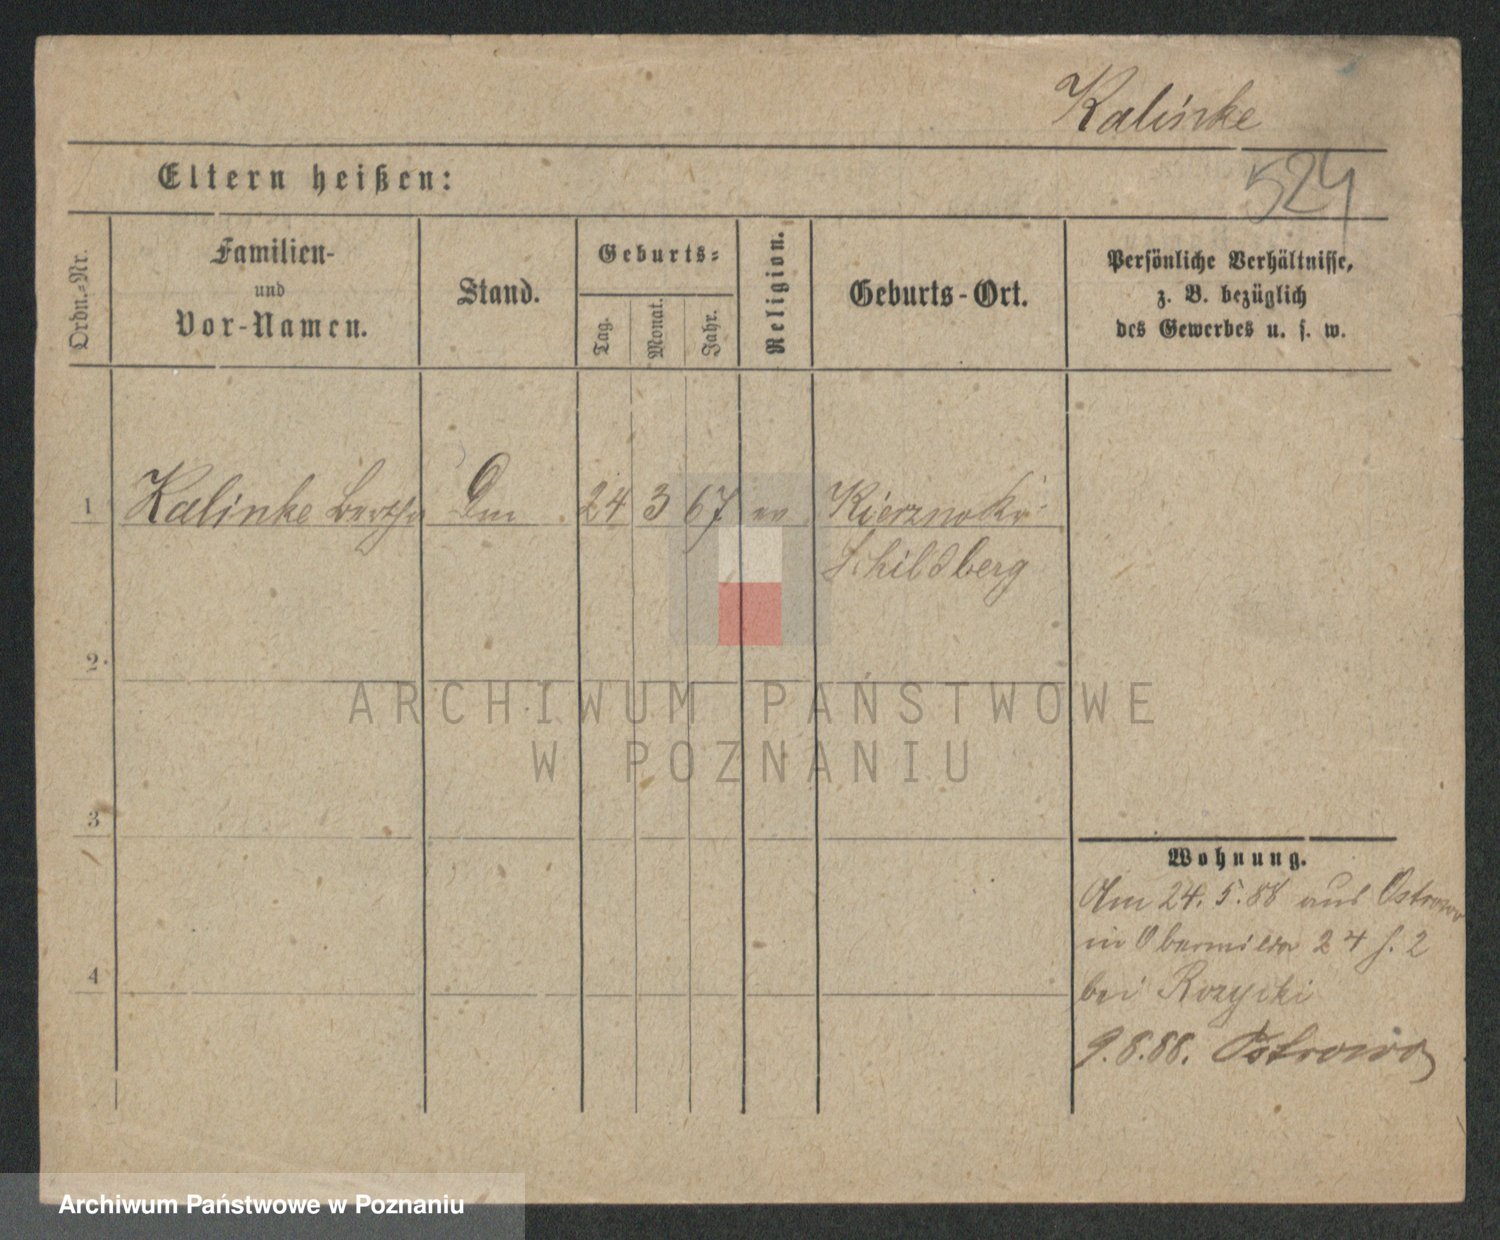 Kalinke
524
Eltern heißen:
Ordn.-Nr.
Familien-
und
Vor-Namen.
Stand.
Geburts-
Tag.
Monat.
Jahr.
Religion.
Geburts-Ort.
Persönliche Verhältnisse,
z. B. bezüglich
des Gewerbes u. s. w.
1 Kalinke Bertha 24 3 67 ev
Schildberg
2.
3
4
Wohnung.
Am 24.5.88 aus Ostrowo
in 24
bei Rozycki
9.8.88. Ostrowo
ARCHIWUM PAŃSTWOWE
W POZNANIU
Archiwum Państwowe w Poznaniu